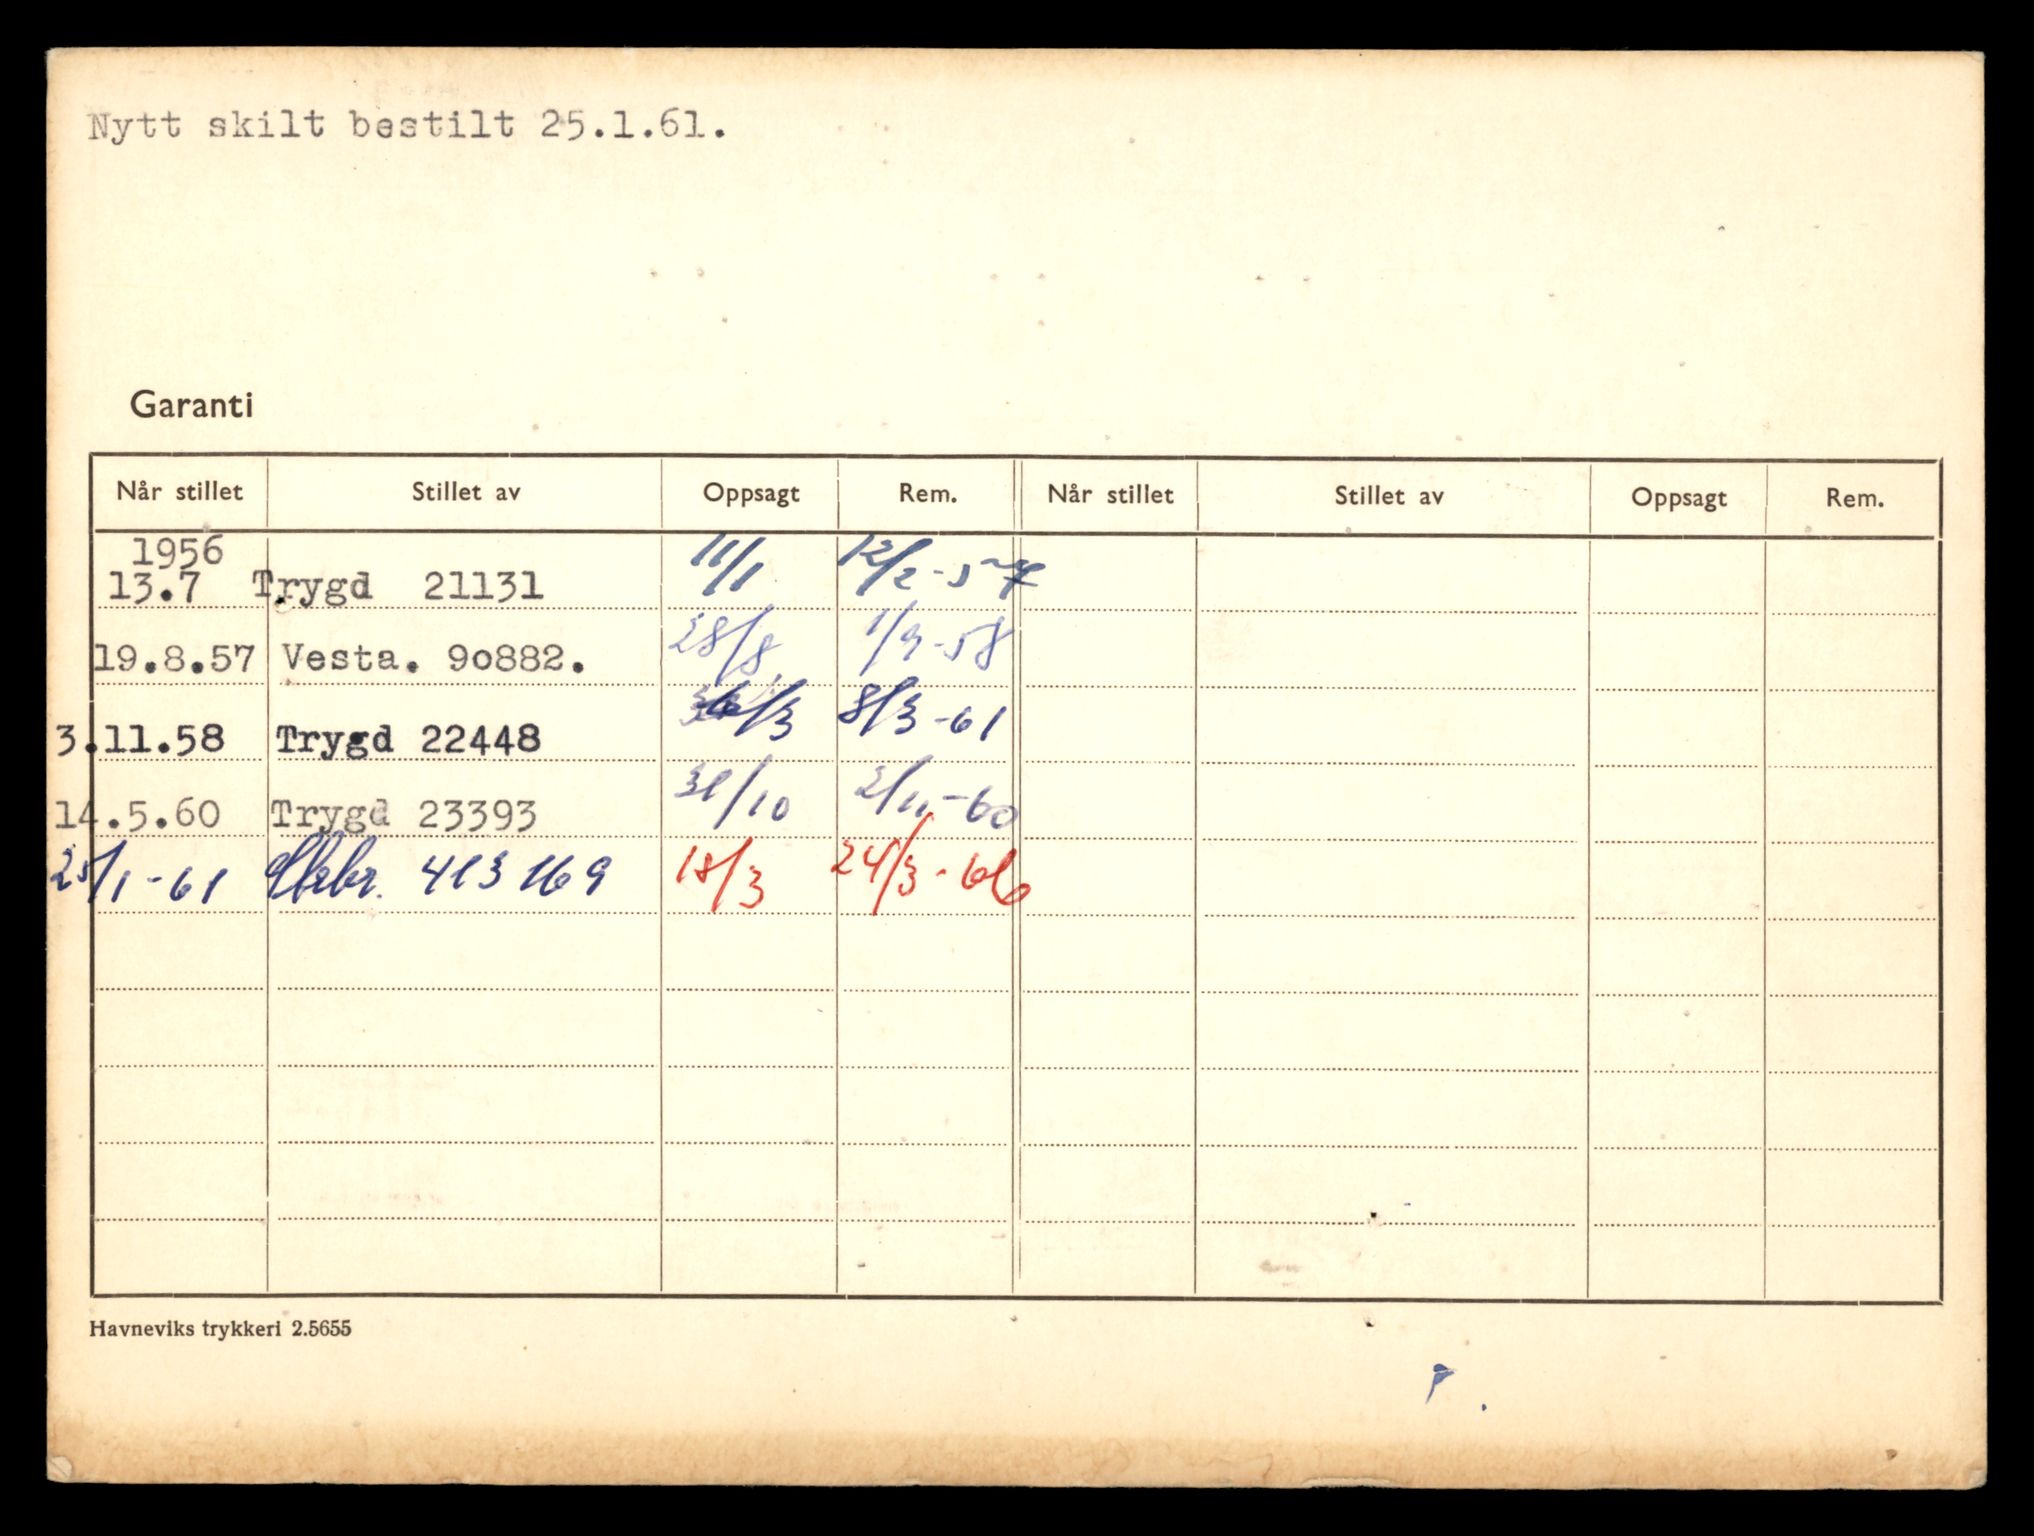 Nytt skilt bestilt 25.1.61.
Garanti
Når stillet Stillet av Oppsagt Rem. Når stillet Stillet av Oppsagt Rem.
1956
13.7 Trygd 21131 11/1 12/2-57
19.8.57 Vesta. 90882. 28/8 1/9-58
3.11.58 Trygd 22448 /3 8/3-61
14.5.60 Trygd 23393 31/10 2/11-60
25/1-61 413169 18/3 24/3-66
Havneviks trykkeri 2.5655